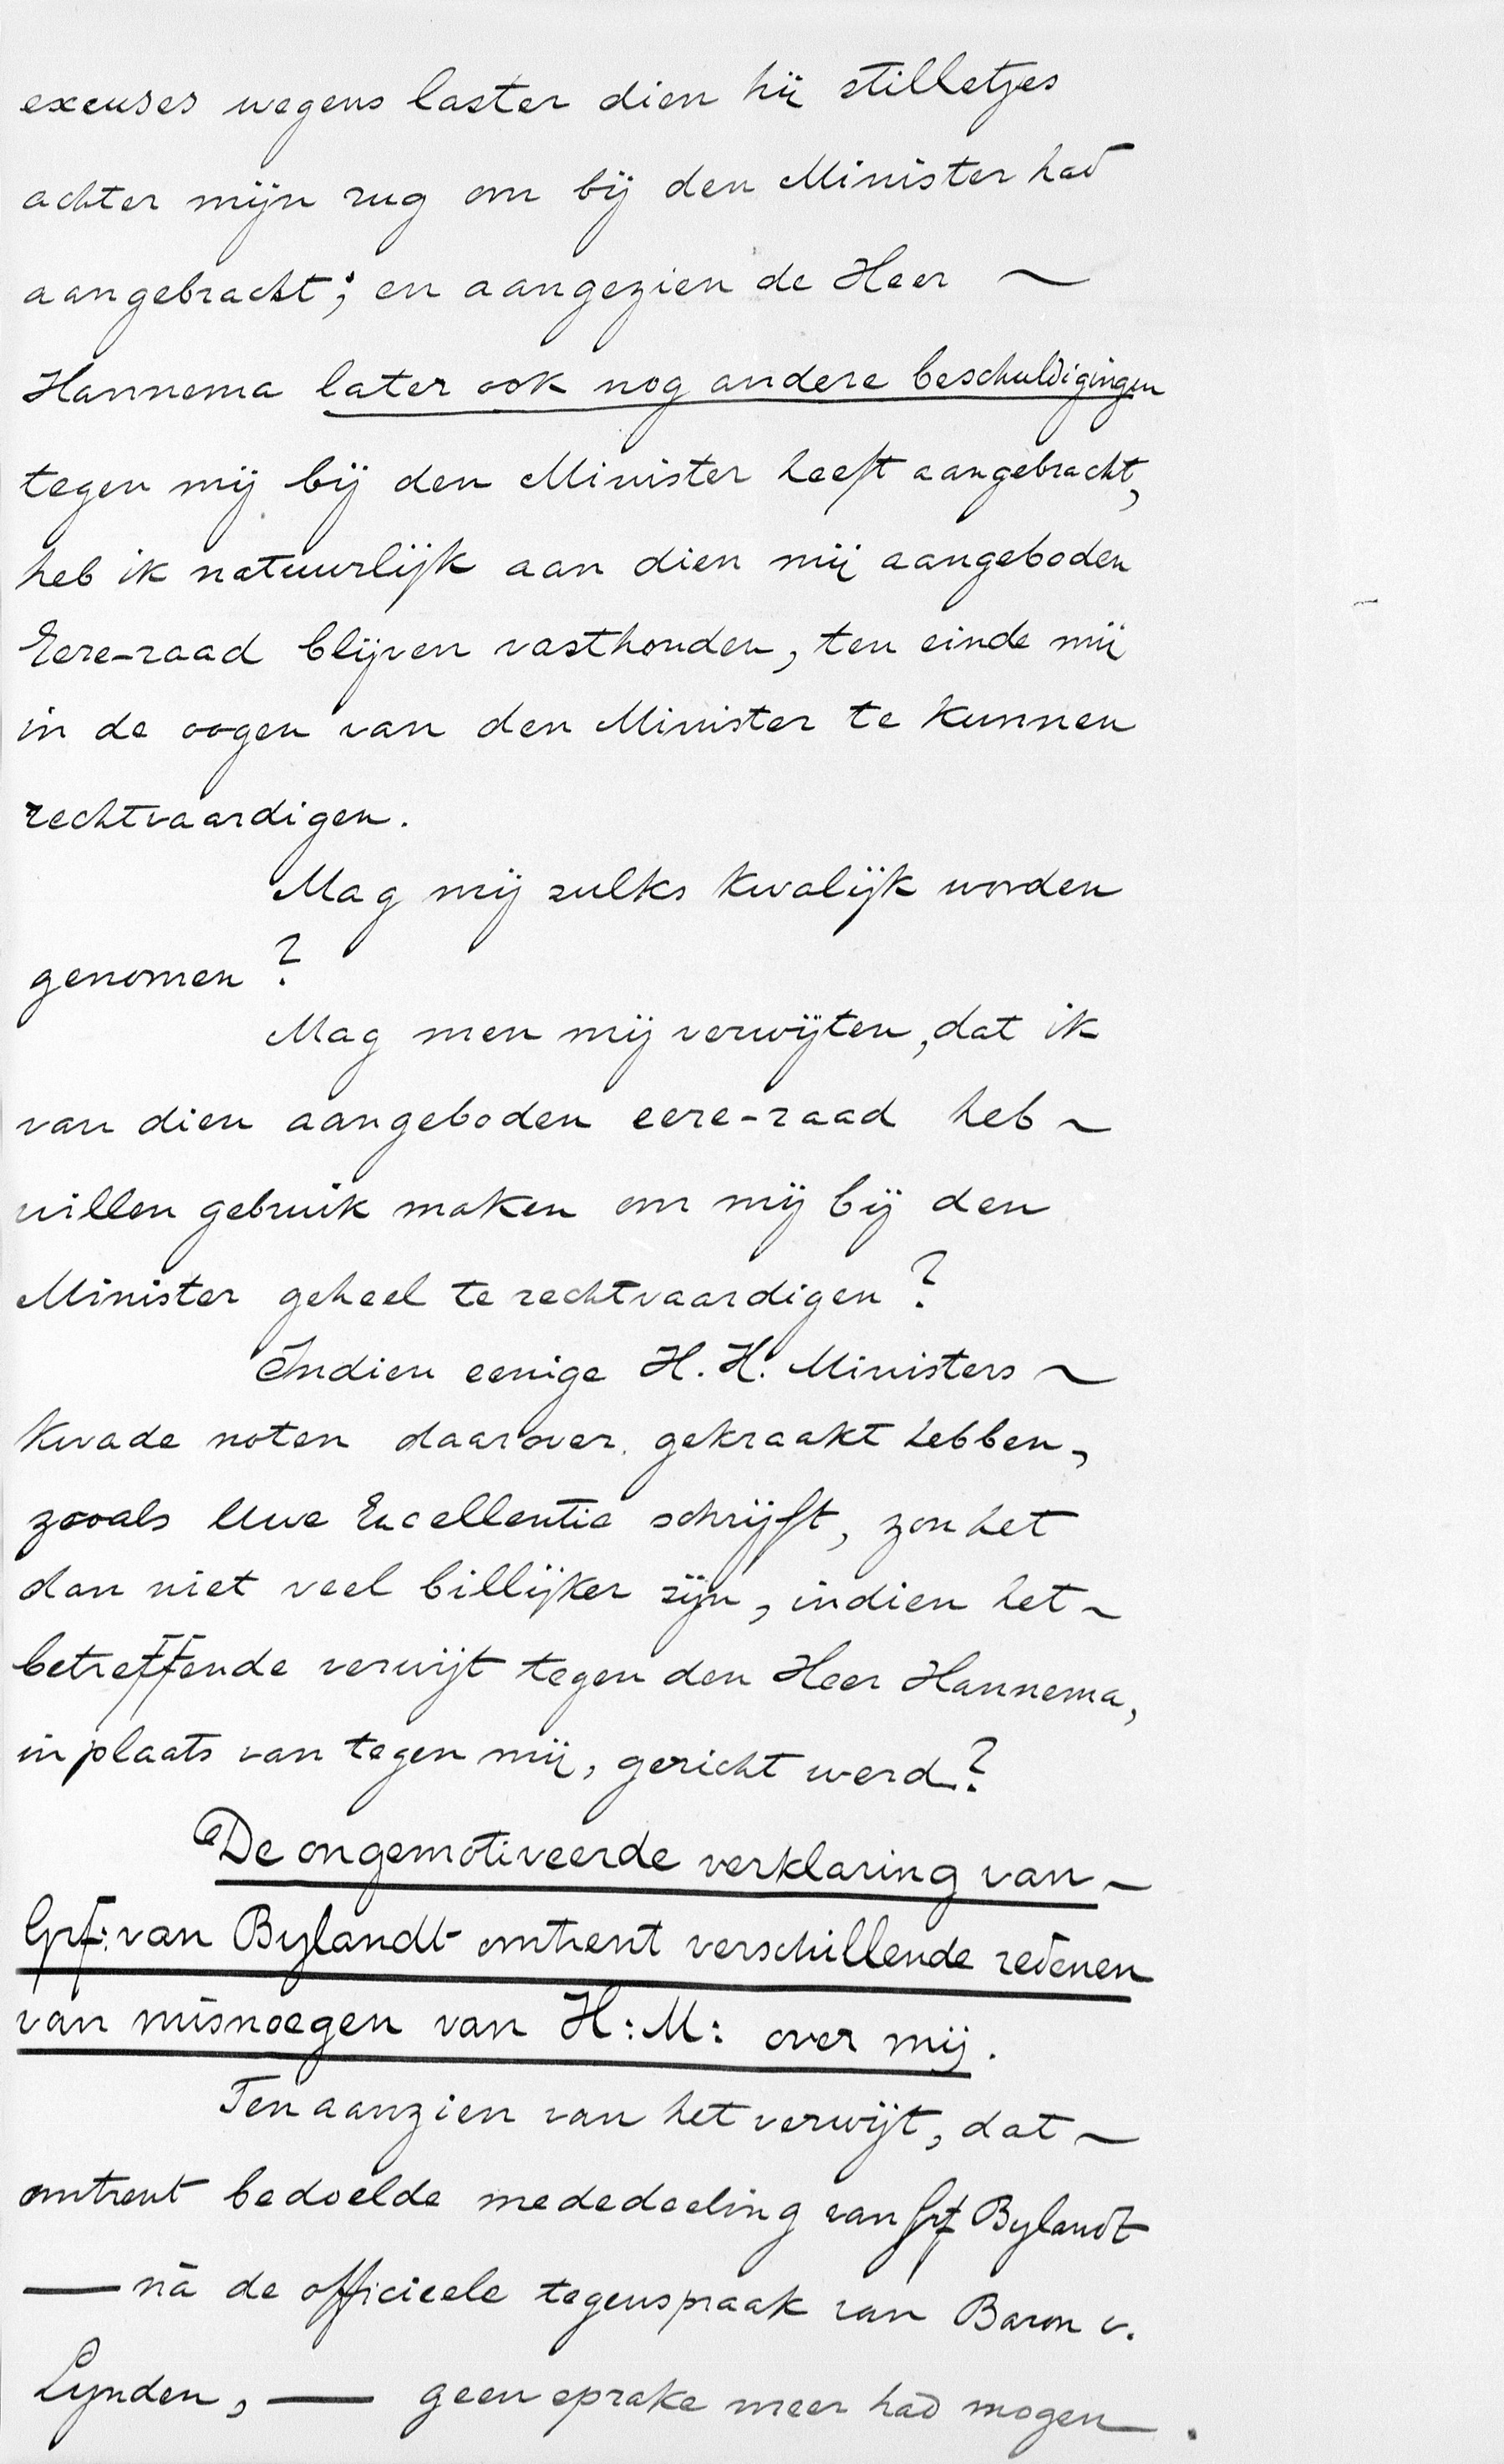 excuses wegens laster dien hij stilletjes
achter mijn rug om bij den Minister had
aangebracht; en aangezien de Heer ~
Hannema later ook nog andere beschuldigingen
tegen mij bij den Minister heeft aangebracht,
heb ik natuurlijk aan dien mij aangeboden
Eere-raad blijven vasthouden, ten einde mij
in de oogen van den Minister te kunnen
rechtvaardigen.
Mag mij zulks kwalijk worden
genomen?
Mag men mij verwijten, dat ik
van dien aangeboden eere-raad heb ~
willen gebruik maken om mij bij den
Minister geheel te rechtvaardigen?
Indien eenige H.H. Ministers ~
kwade noten daarover gekraakt hebben,
zooals Uwe Excellentie schrijft, zou het
dan niet veel billijker zijn, indien het ~
betreffende verwijt tegen den Heer Hannema,
in plaats van tegen mij, gericht werd?
De ongemotiveerde verklaring van ~
Grf: van Bylandt omtrent verschillende redenen
van misnoegen van H:M: over mij.
Ten aanzien van het verwijt, dat ~
omtrent bedoelde mededeeling van Grf Bylandt
— nà de officieele tegenspraak van Baron v.
Lynden, — geen sprake meer had mogen